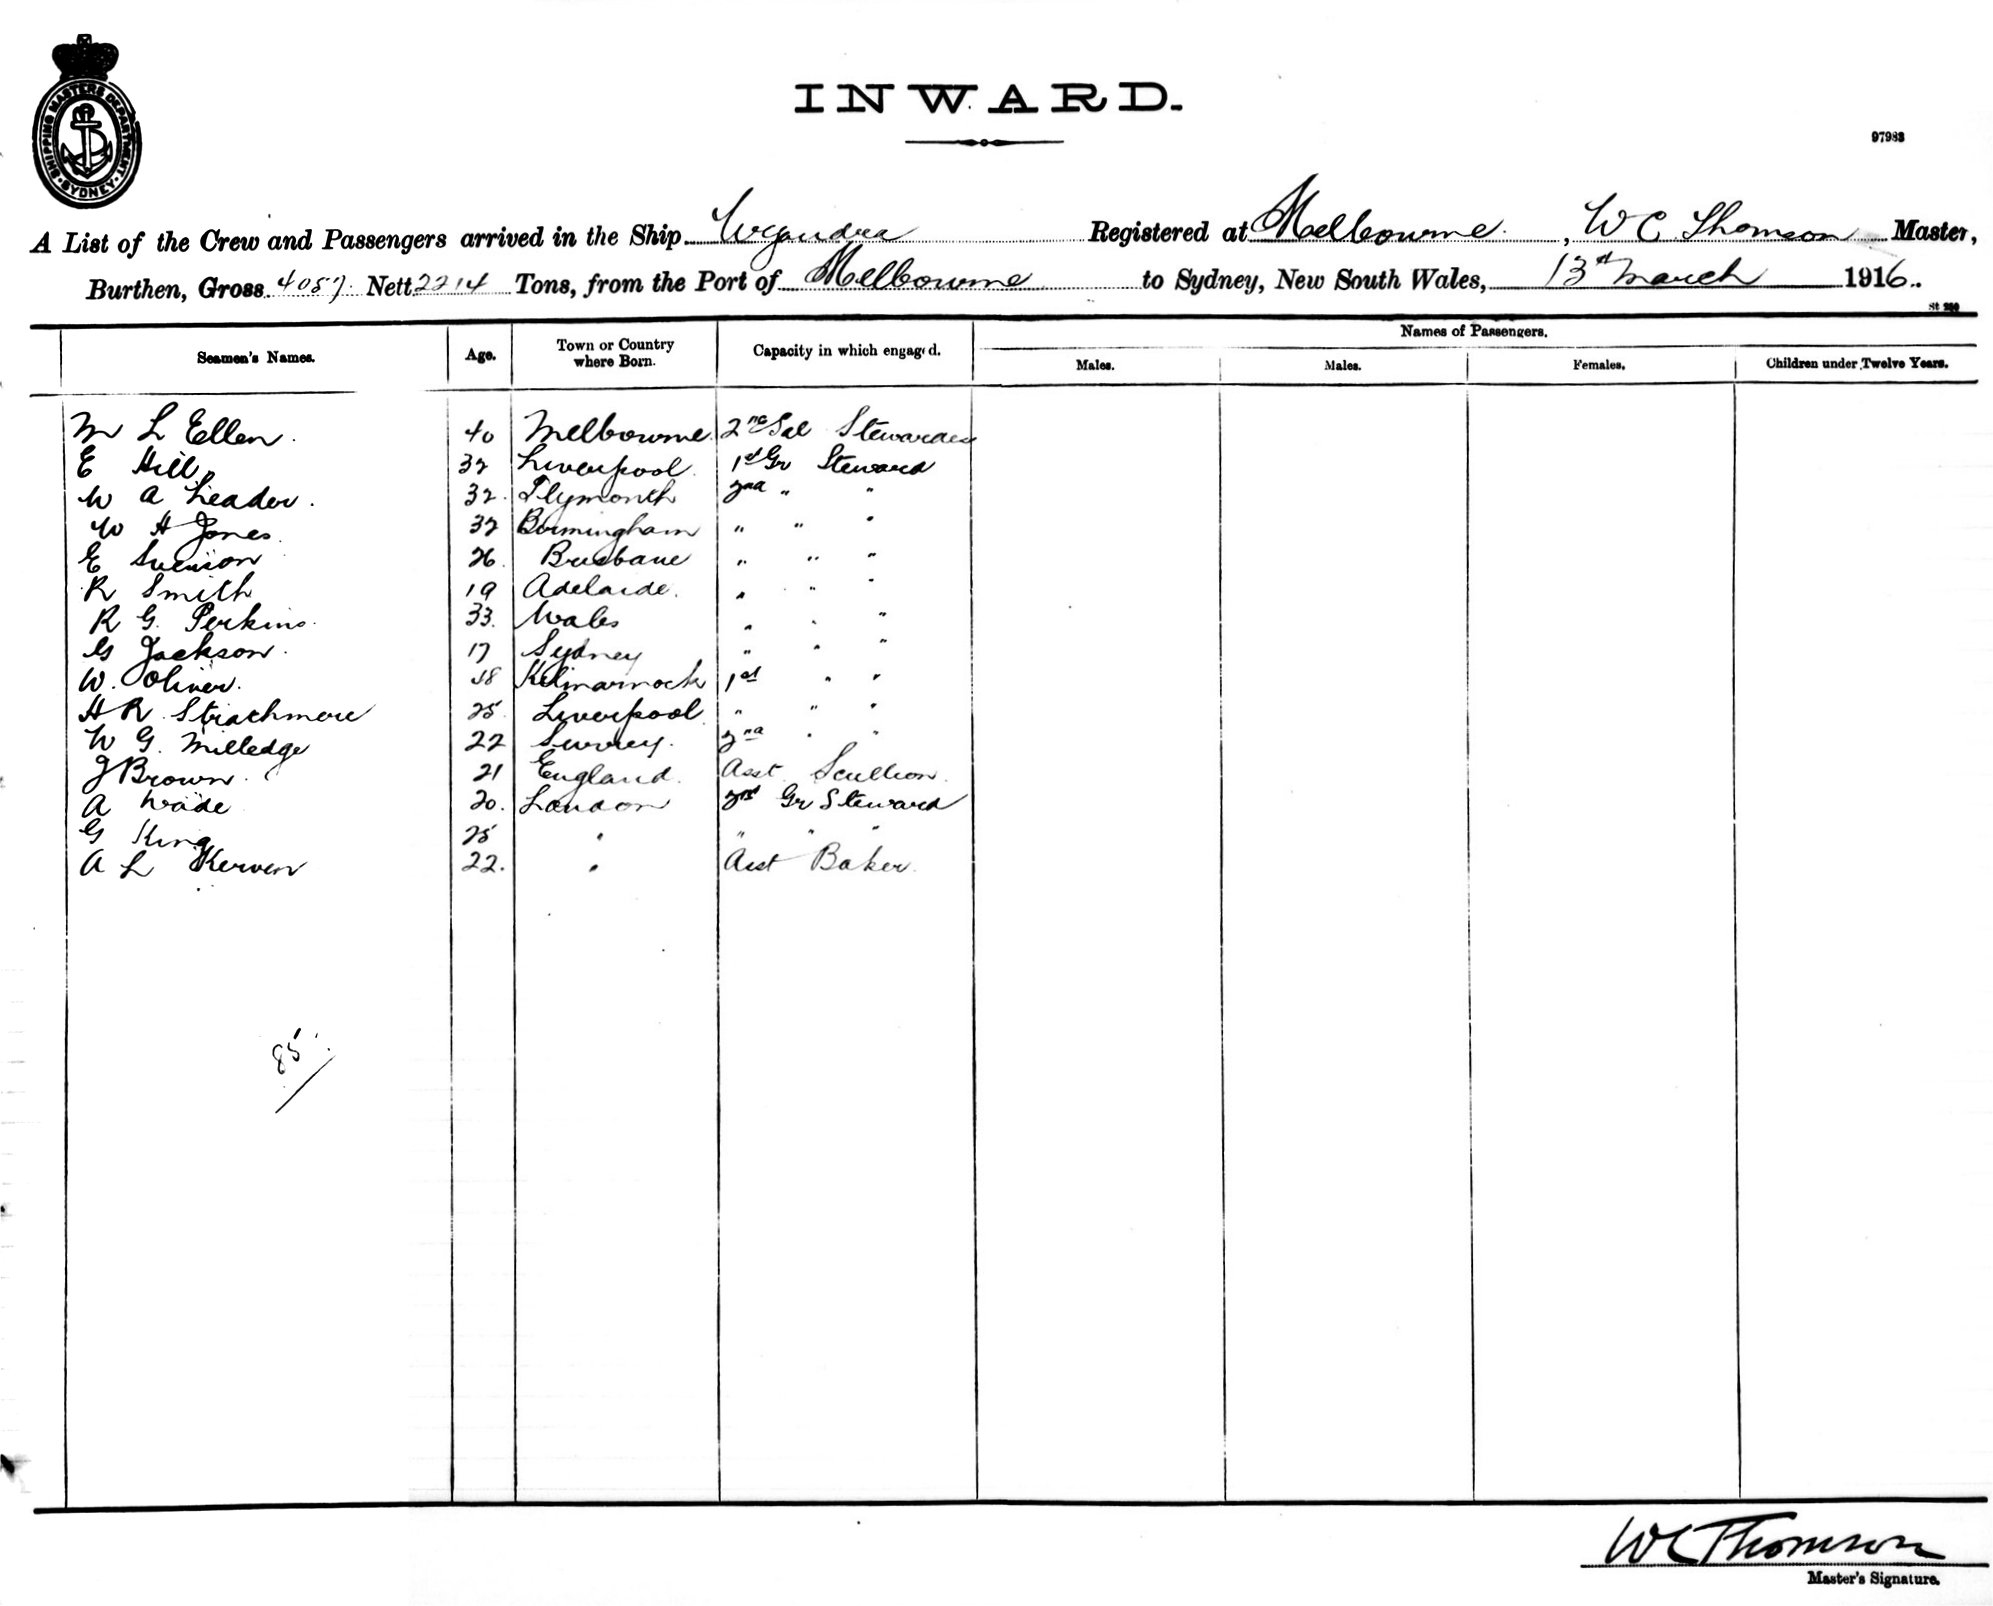 SHIPPING MASTERS DEPARTMENT
SYDNEY
INWARD.
97983
A List of the Crew and Passengers arrived in the Ship Wyandra Registered at Melbourne, W C Thomson Master,
Burthen, Gross 4057 Nett 2214 Tons, from the Port of Melbourne to Sydney, New South Wales, 13th March 1916.
Seamen's Names. Age. Town or Country where Born. Capacity in which engaged. Names of Passengers.
Males. Males. Females. Children under Twelve Years.
M L Ellen. 40 Melbourne 2nd Sal Stewardess
E Hill 32 Liverpool 1st Gr Steward
W A Leader. 32. Plymouth 2nd " "
W H Jones 32 Birmingham " " "
E Svenson 26 Brisbane " " "
R Smith 19 Adelaide. " " "
R G. Perkins. 33. Wales " " "
G Jackson. 17 Sydney " " "
W. Oliver. 18 Kilmarnock 1st " "
H R Strachmore 25 Liverpool " " "
W G. Milledge 22 Surrey. 2nd " "
J Brown. 21 England. Asst Scullion.
A Wade 20. London 2nd Gr Steward
G King 25 " " " "
A L Kerven 22. " Asst Baker.
85
W C Thomson
Master's Signature.